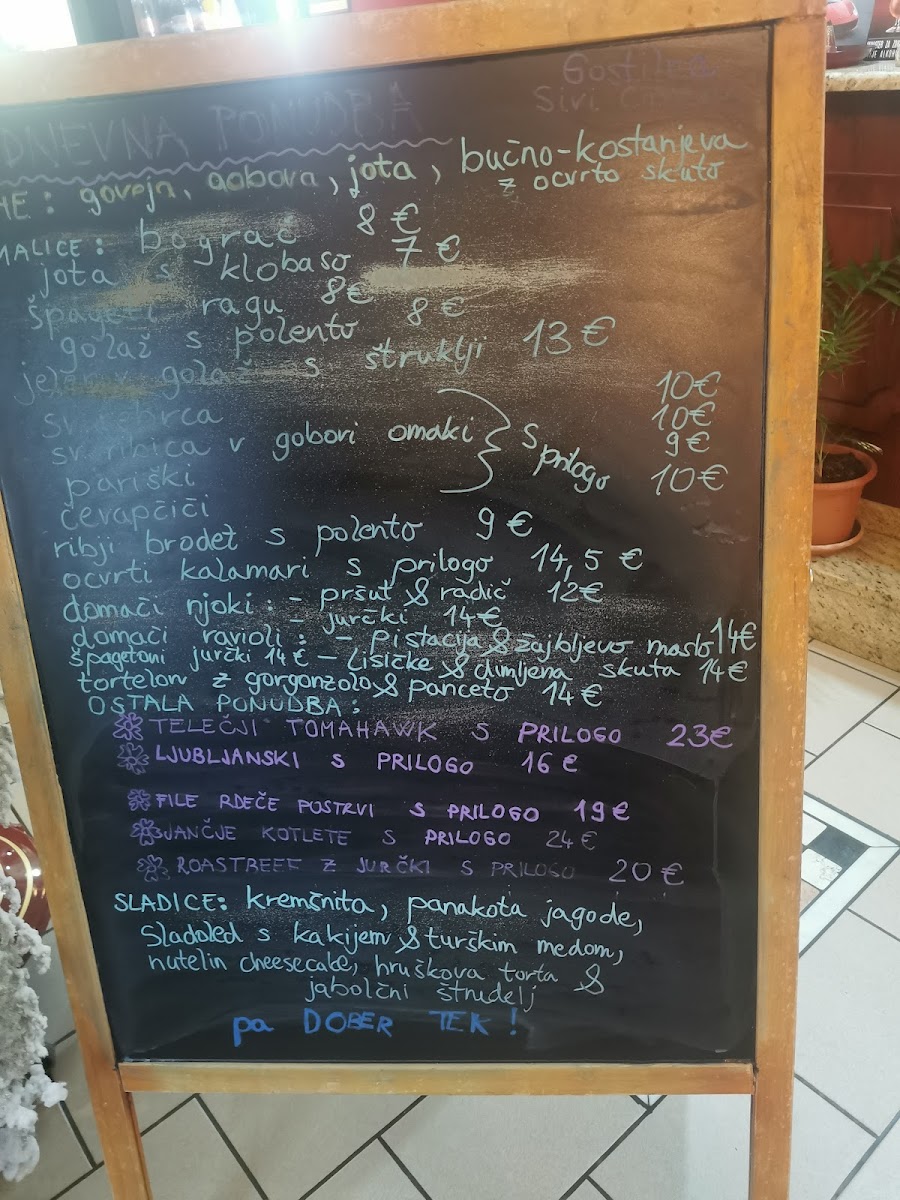 Gostilna
Sivi
DNEVNA PONUDBA
HE: goveja, gobova, jota, bučno-kostanjeva
z ocvrto skuto
MALICE: bograč 8 €
jota s klobaso 7 €
špageti ragu 8€
golaž s polento 8 €
jelenov golaž s štruklji 13 €
sv. zarebrca 10€
sv. ribica v gobovi omaki 10€
pariški 9€
čevapčiči 10€
s prilogo
ribji brodet s polento 9 €
ocvrti kalamari s prilogo 14,5 €
domači njoki: - pršut & radič 12€
- jurčki 14€
domači ravioli: - pistacija & žajbljevo maslo 14€
špagetoni jurčki 14€ - lisičke & dimljena skuta 14€
tortelon z gorgonzolo & panceto 14€
OSTALA PONUDBA:
TELEČJI TOMAHAWK S PRILOGO 23€
LJUBLJANSKI S PRILOGO 16€
FILE RDEČE POSTRVI S PRILOGO 19€
JANČJE KOTLETE S PRILOGO 24€
ROASTBEEF Z JURČKI S PRILOGO 20€
SLADICE: kremšnita, panakota jagode,
sladoled s kakijem & turškim medom,
nutelin cheesecake, hruškova torta &
jabolčni štrudelj
pa DOBER TEK!